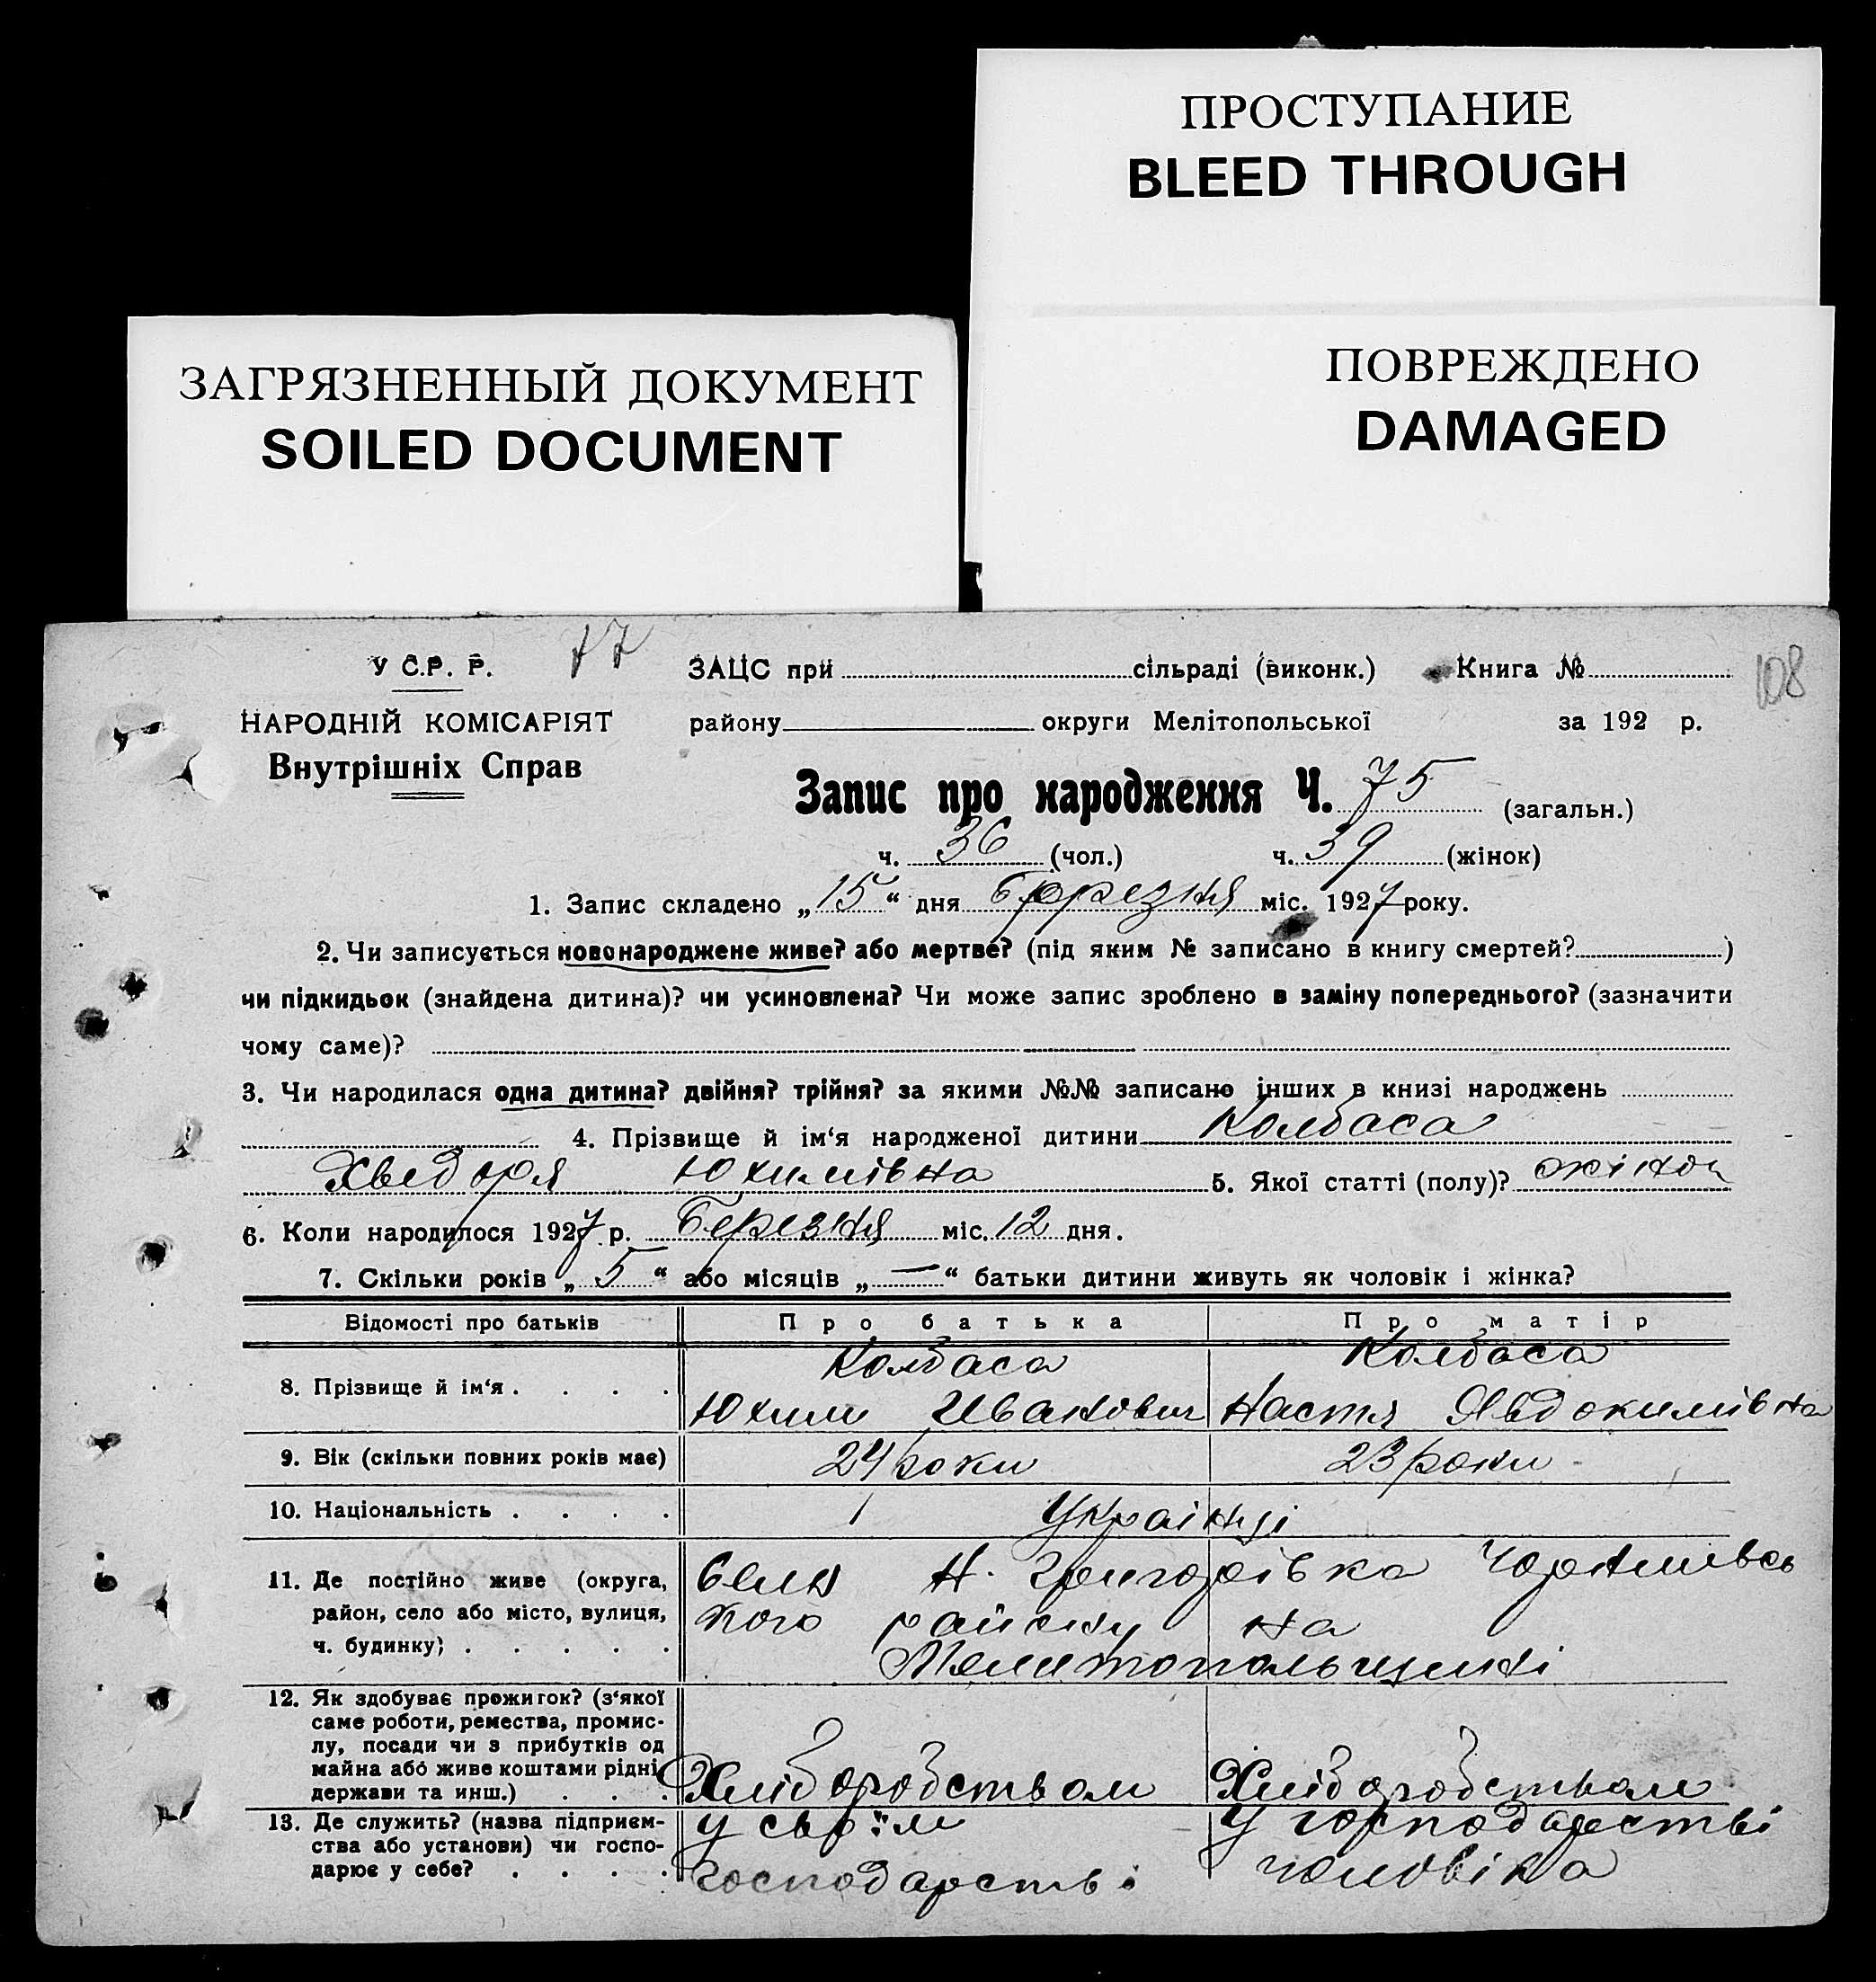 ПРОСТУПАНИЕ
BLEED THROUGH
ЗАГРЯЗНЕННЫЙ ДОКУМЕНТ
SOILED DOCUMENT
ПОВРЕЖДЕНО
DAMAGED
У С.Р. Р. 77 ЗАЦС при сільраді (виконк.) Книга № 108
НАРОДНІЙ КОМІСАРІЯТ району округи Мелітопольської за 192 р.
Внутрішніх Справ
Запис про народження Ч. 75 (загальн.)
ч. 36 (чол.) ч. 39 (жінок)
1. Запис складено „15“ дня березня міс. 1927 року.
2. Чи записується новонароджене живе? або мертве? (під яким № записано в книгу смертей? )
чи підкидьок (знайдена дитина)? чи усиновлена? Чи може запис зроблено в заміну попереднього? (зазначити
чому саме)?
3. Чи народилася одна дитина? двійня? трійня? за якими №№ записано інших в книзі народжень
4. Прізвище й ім‘я народженої дитини Колбаса
Хведоря Юхимівна 5. Якої статті (полу)? жіноч
6. Коли народилося 1927 р. Березня міс. 12 дня.
7. Скільки років „5“ або місяців „—“ батьки дитини живуть як чоловік і жінка?
Відомості про батьків Про батька Про матір
Колбаса Колбаса
8. Прізвище й ім‘я . . . .
Юхим Иванович Настя Явдокимівна
9. Вік (скільки повних років має) 24 роки 23 роки
10. Національність . . . . Українці
11. Де постійно живе (округа, Село Н. Григорівка Чорнивсь
район, село або місто, вулиця, кого району на
ч. будинку) . . . . . Мелитопольщині
12. Як здобуває прожиток? (з‘якої
саме роботи, ремества, промис-
лу, посади чи з прибутків од
майна або живе коштами рідні,
держави та инш.) . . . Хліборобством Хліборобством
13. Де служить? (назва підприєм- у своїм у господарстві
ства або установи) чи госпо-
дарює у себе? . . . . господарстві чоловіка